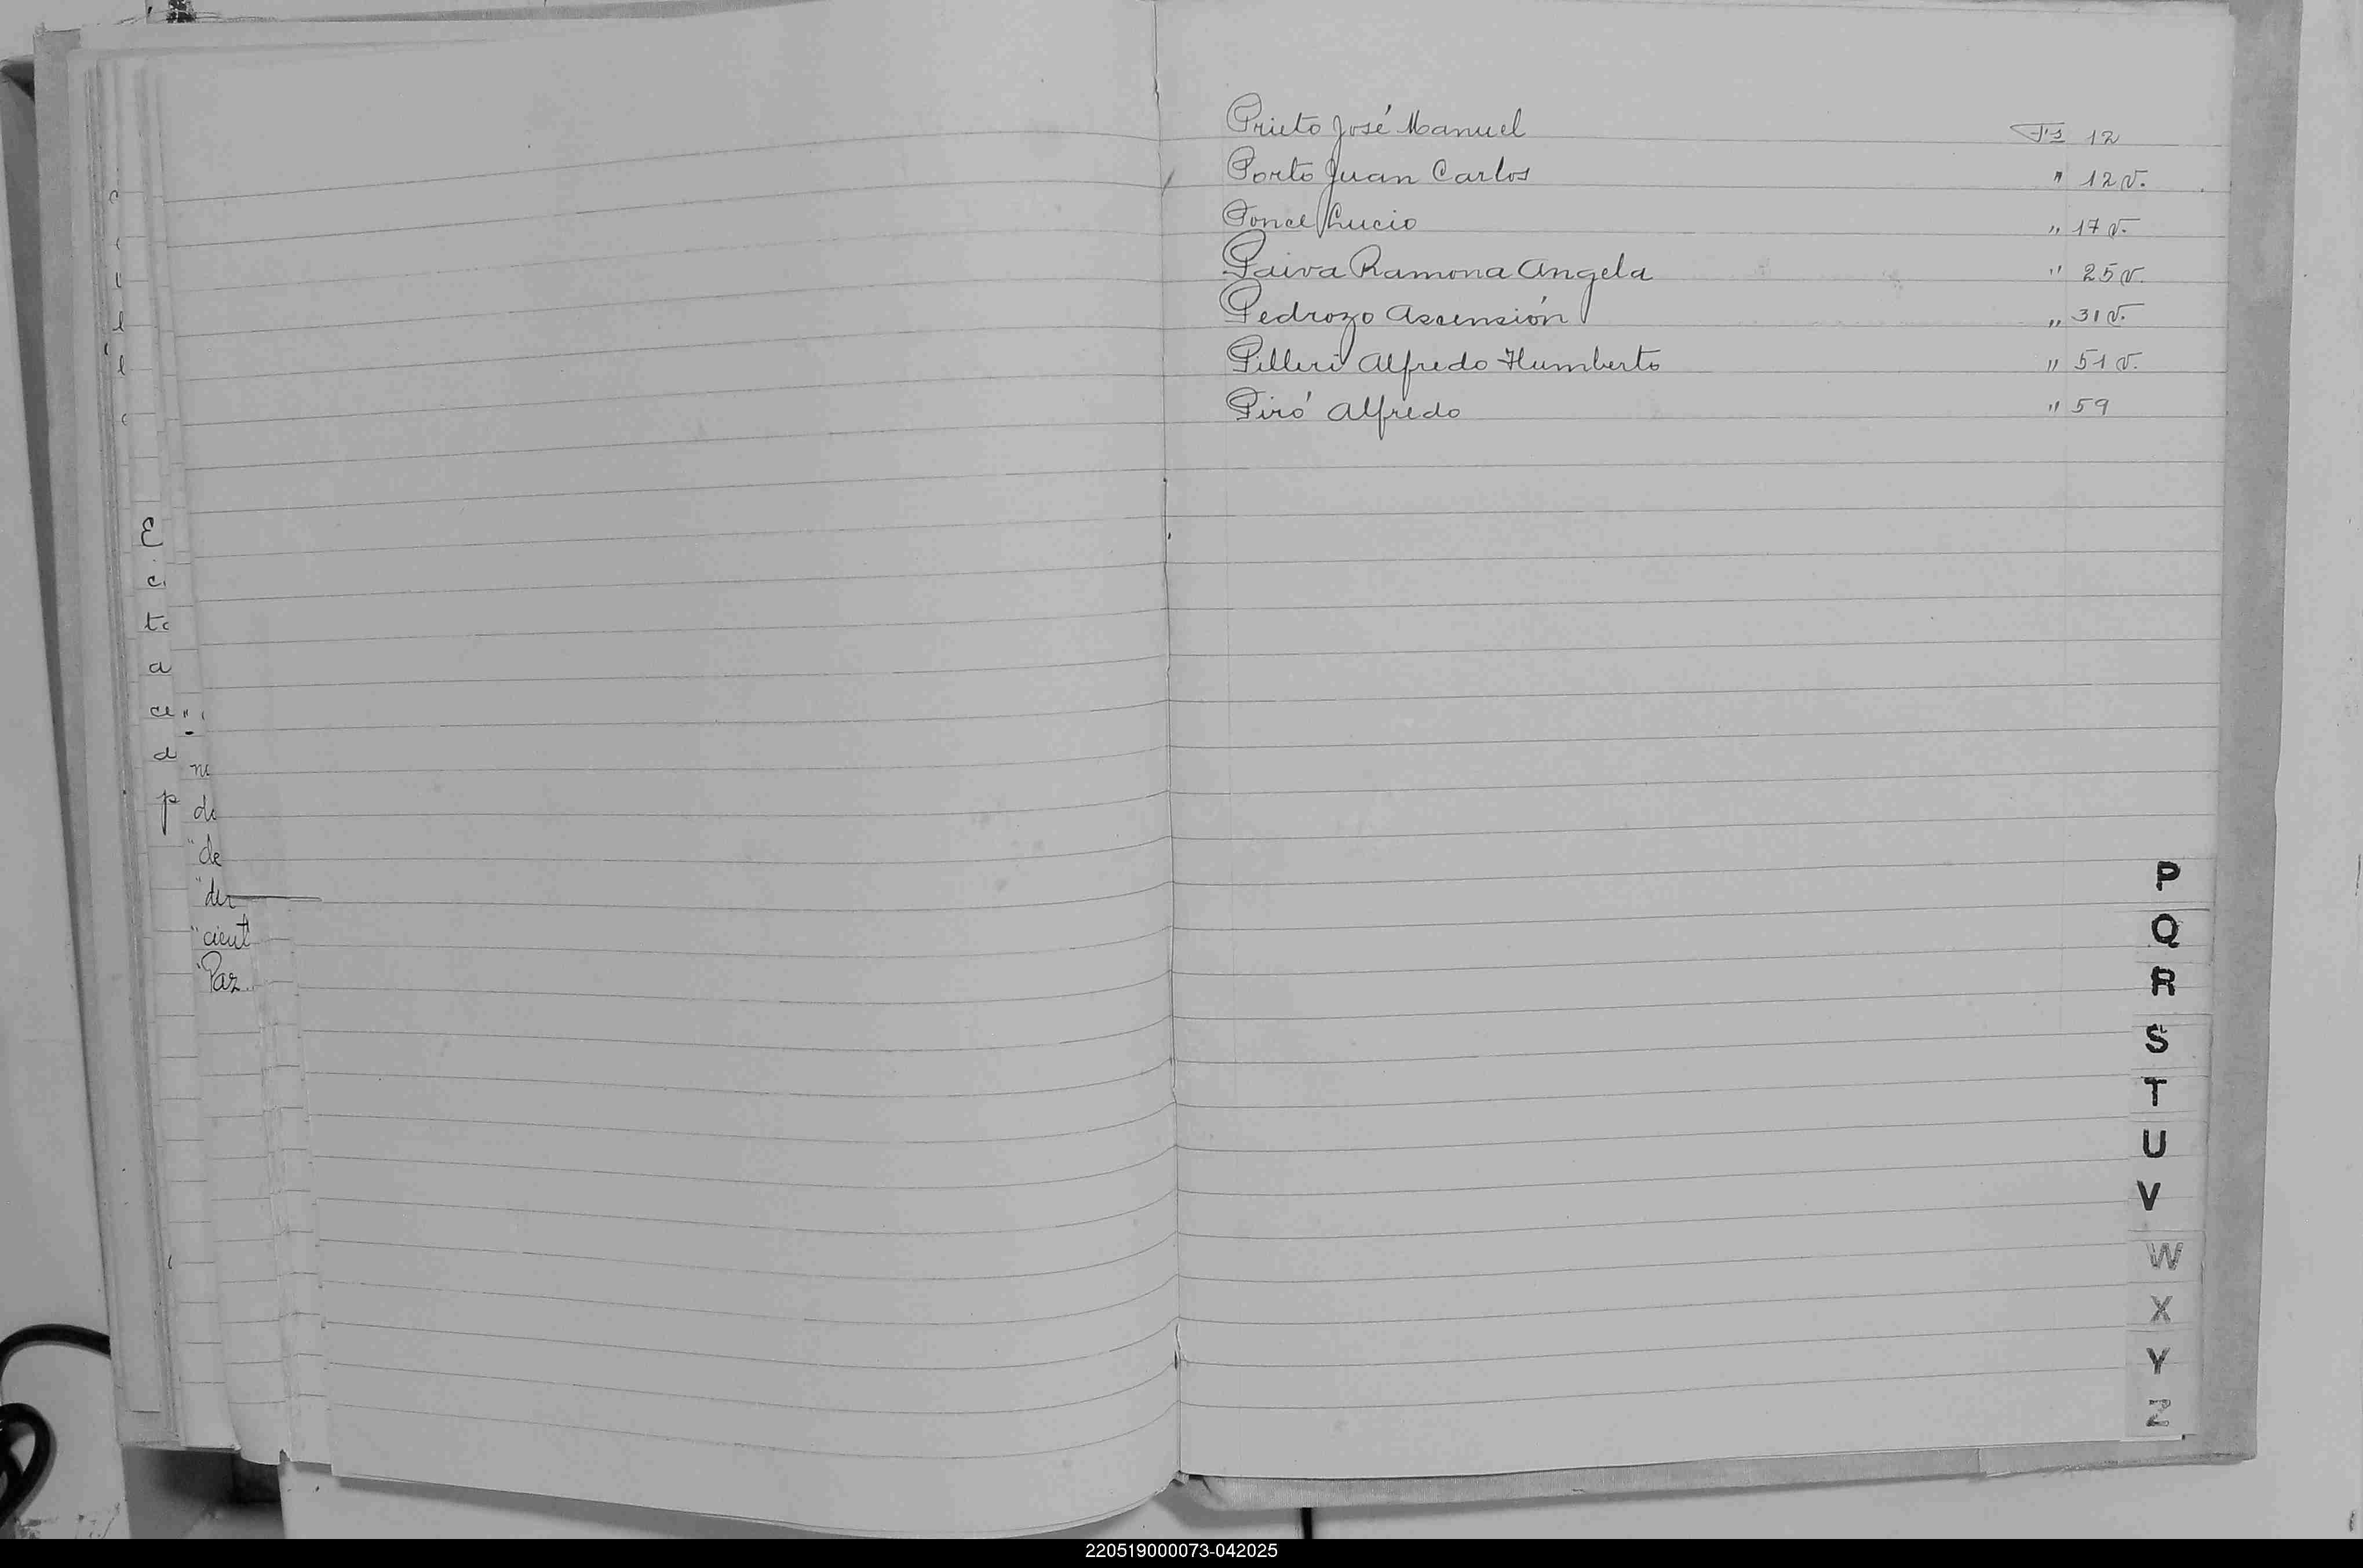 Prieto José Manuel Fs 12
Porto Juan Carlos " 12 v.
Ponce Lucio " 17 v.
Paiva Ramona Angela " 25 v.
Pedrozo Ascensión " 31 v.
Pilleri Alfredo Humberto " 51 v.
Piró Alfredo " 59
E
a
d
p
de
"de
Paz
P
Q
R
S
T
U
V
W
X
Y
Z
220519000073-042025